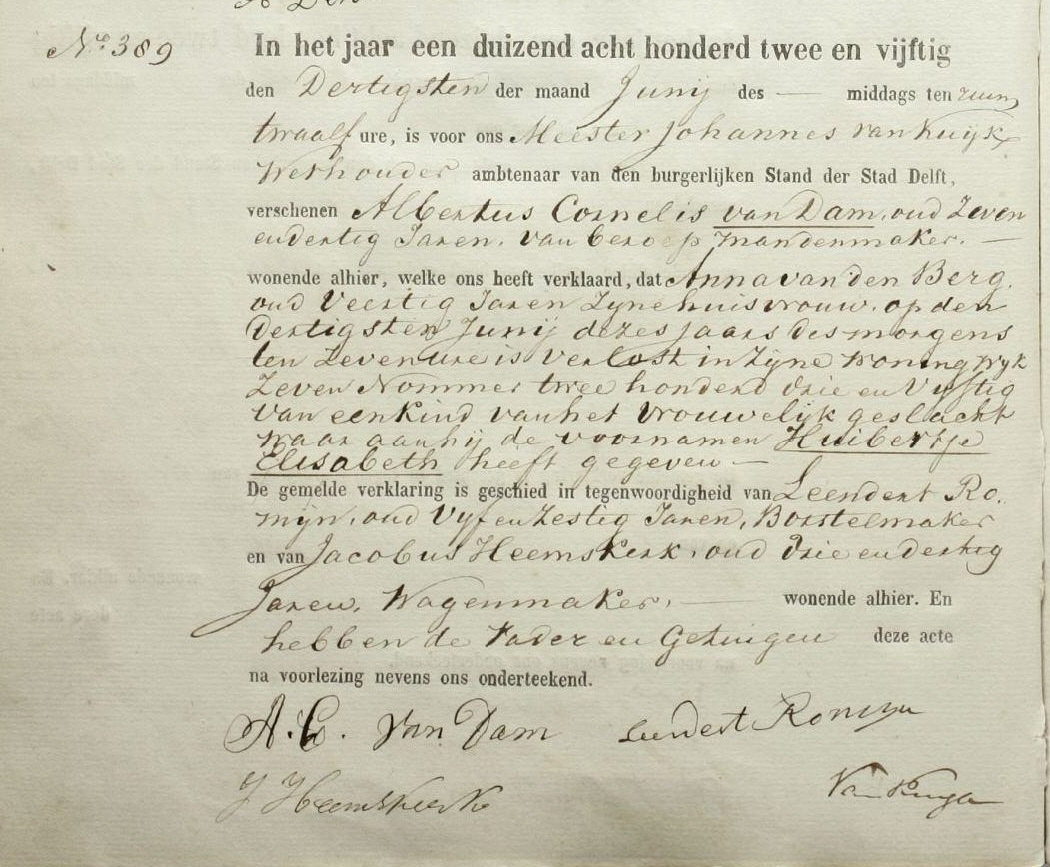 No 389
In het jaar een duizend acht honderd twee en vijftig
den Dertigsten der maand Junij des — middags ten ruim
twaalf ure, is voor ons Meester Johannes van Kuijk
Wethouder ambtenaar van den burgerlijken Stand der Stad Delft,
verschenen Albertus Cornelis van Dam, oud Zeven
endertig Jaren, van beroep mandenmaker. —
wonende alhier, welke ons heeft verklaard, dat Anna van den Berg,
oud Veertig Jaren Zyne huisvrouw, op den
Dertigsten Junij dezes jaars des morgens
ten Zeven ure is Verlost in Zyne woning Wyk
Zeven Nommer twee honderd drie en Vyftig
van een kind van het vrouwelijk geslacht
waar aan hij de voornamen Huibertje
Elisabeth heeft gegeven —
De gemelde verklaring is geschied in tegenwoordigheid van Leendert Ro
mijn, oud Vyf en Zestig Jaren, Borstelmaker
en van Jacobus Heemskerk, oud drie en dertig
Jaren, Wagenmaker, — wonende alhier. En
hebben de Vader en Getuigen deze acte
na voorlezing nevens ons onderteekend.
A. C. van Dam Leendert Romyn
J Heemskerk Van Kuyk